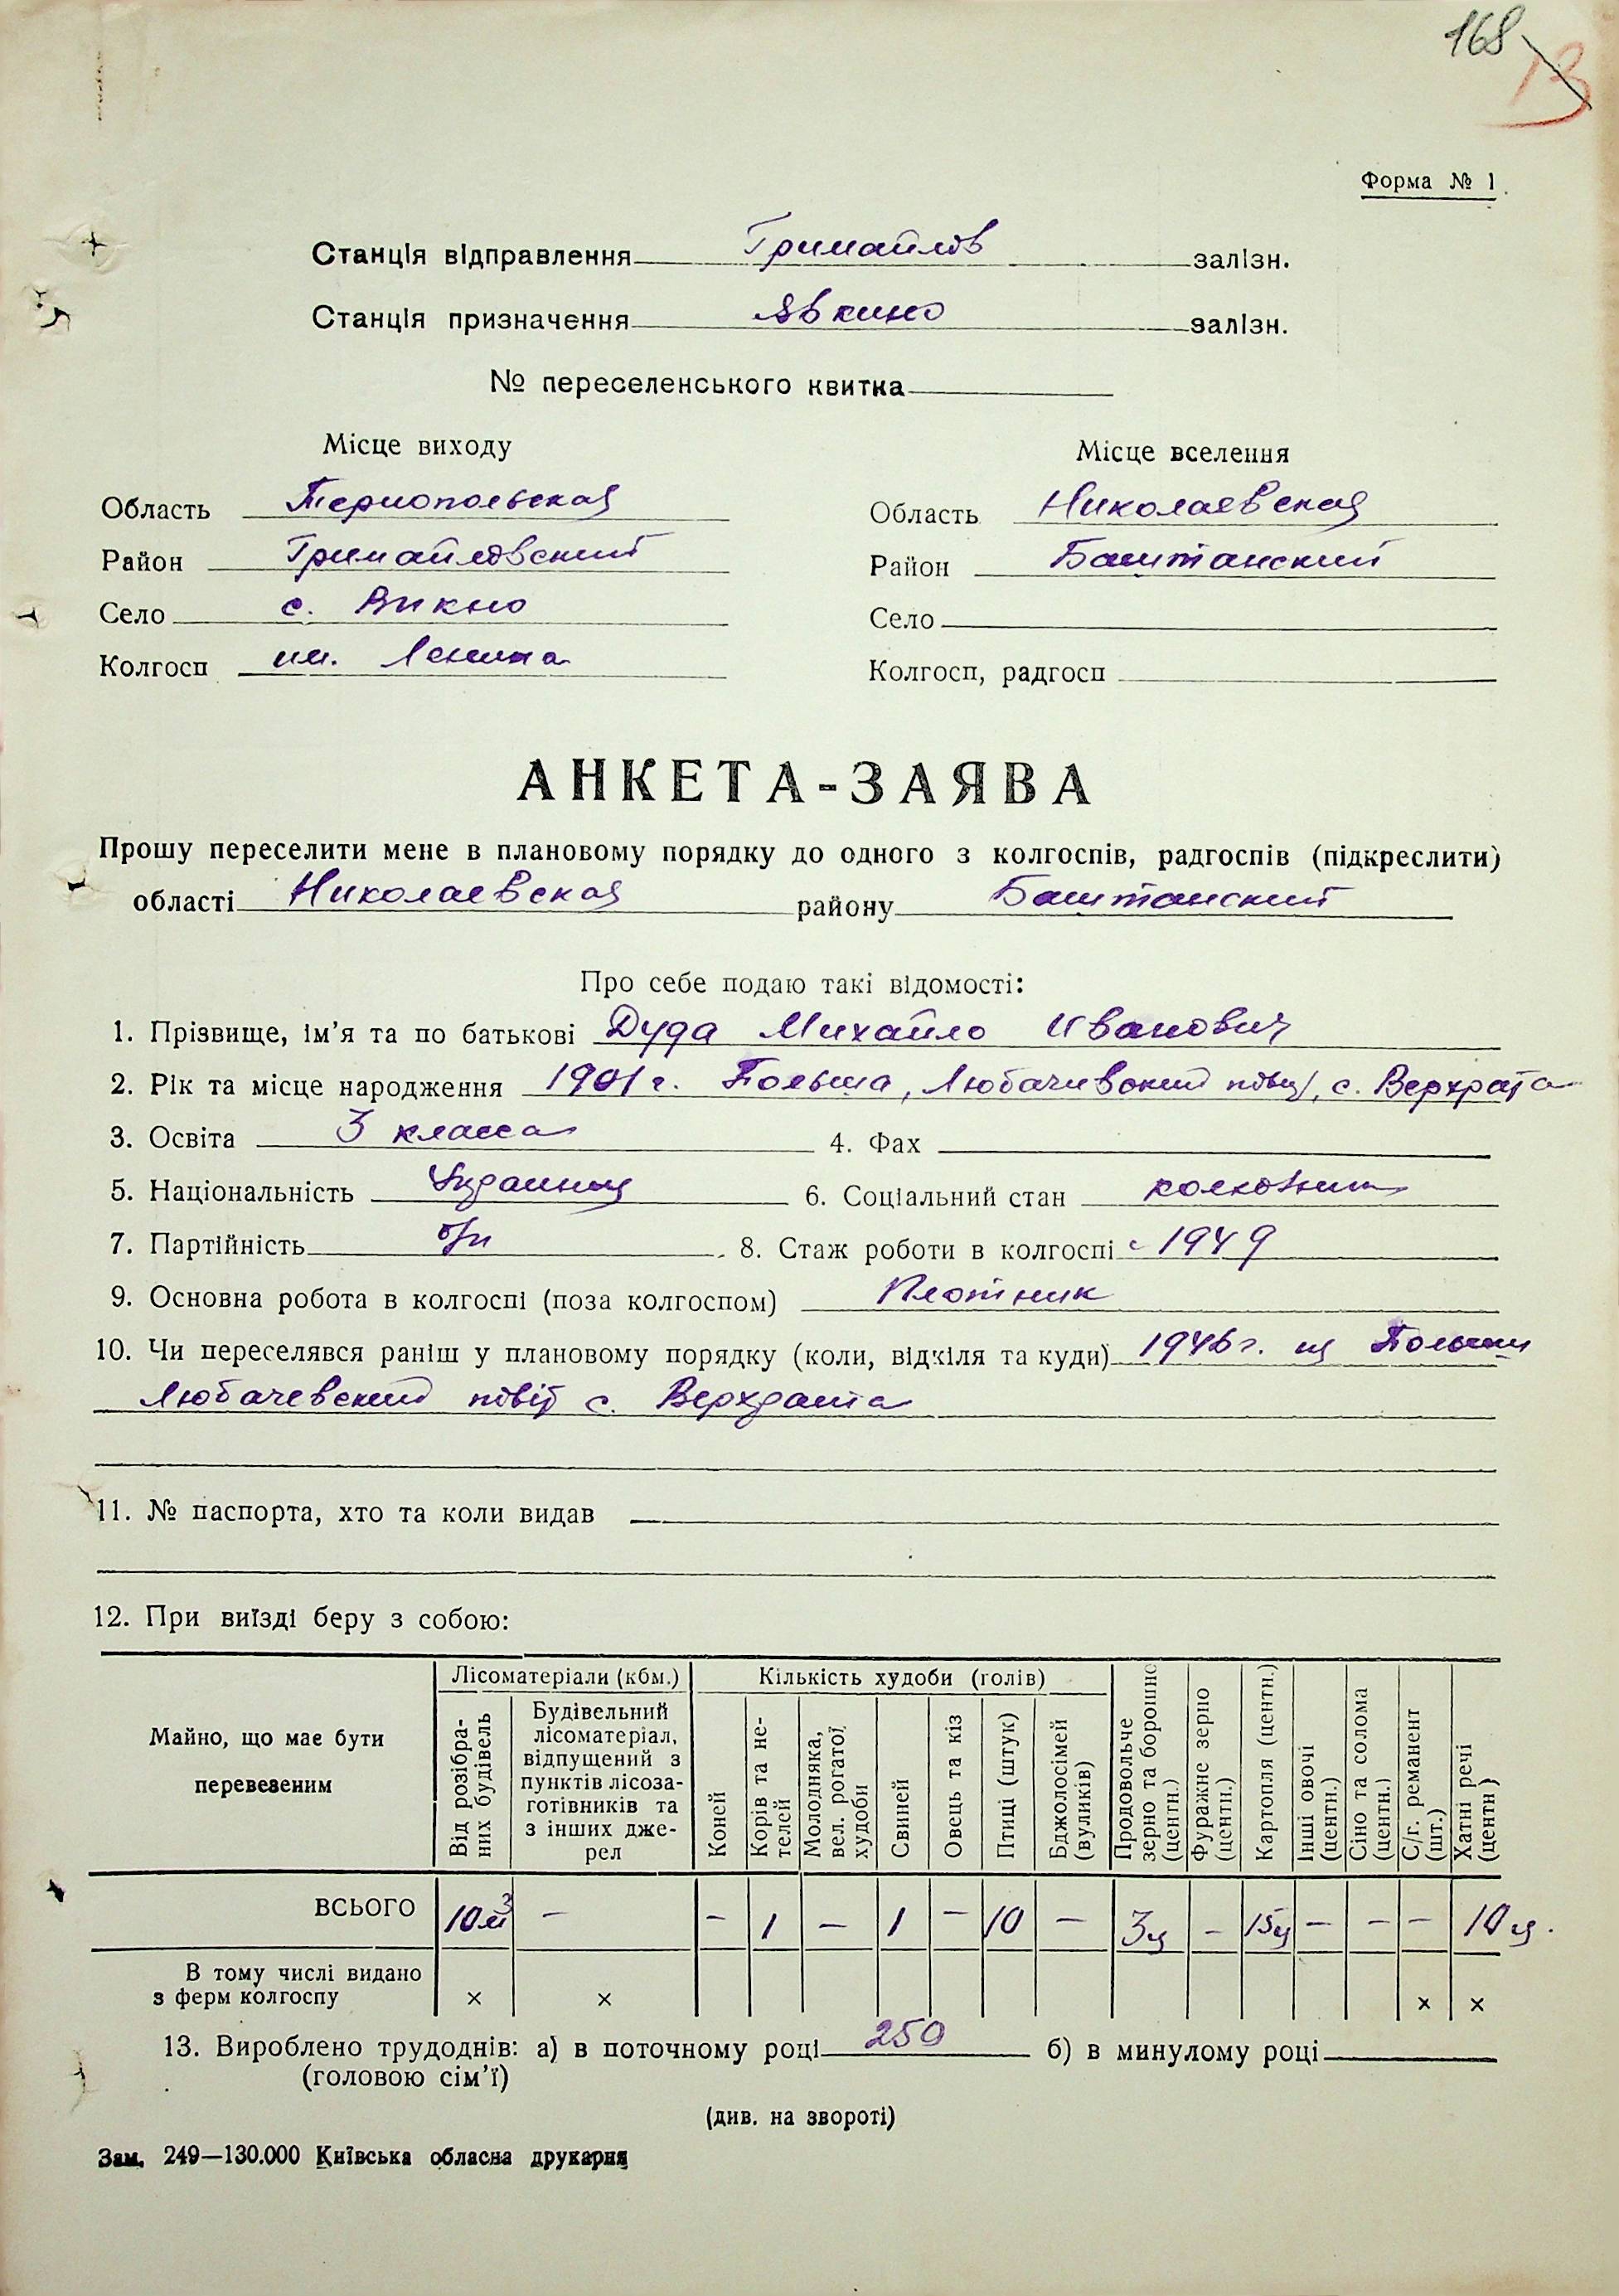 168 13
Форма № 1
Станція відправлення Гримайлов залізн.
Станція призначення Явкино залізн.
№ переселенського квитка
Місце виходу
Область Тернопольская
Район Гримайловский
Село с. Викно
Колгосп им. Ленина
Місце вселення
Область Николаевская
Район Баштанский
Село
Колгосп, радгосп
АНКЕТА-ЗАЯВА
Прошу переселити мене в плановому порядку до одного з колгоспів, радгоспів (підкреслити)
області Николаевская району Баштанский
Про себе подаю такі відомості:
1. Прізвище, ім'я та по батькові Дуда Михайло Иванович
2. Рік та місце народження 1901 г. Польша, Любачивский повіт, с. Верхрата
3. Освіта 3 класса 4. Фах
5. Національність Украинец 6. Соціальний стан колхозник
7. Партійність б/п 8. Стаж роботи в колгоспі с 1949
9. Основна робота в колгоспі (поза колгоспом) Плотник
10. Чи переселявся раніш у плановому порядку (коли, відкіля та куди) 1946 г. из Польши
Любачевский повіт с. Верхрата
11. № паспорта, хто та коли видав
12. При виїзді беру з собою:
Майно, що має бути
перевезеним
Лісоматеріали (кбм.)
Від розібра-
них будівель
Будівельний
лісоматеріал,
відпущений з
пунктів лісоза-
готівників та
з інших дже-
рел
Кількість худоби (голів)
Коней
Корів та не-
телей
Молодняка,
вел. рогатої
худоби
Свиней
Овець та кіз
Птиці (штук)
Бджолосімей
(вуликів)
Продовольче
зерно та борошно
(центн.)
Фуражне зерно
(центн.)
Картопля (центн.)
Інші овочі
(центн.)
Сіно та солома
(центн.)
С/г. реманент
(шт.)
Хатні речі
(центн)
ВСЬОГО 10 м³ — — 1 — 1 — 10 — 3ц — 15ц — — — 10 ц.
В тому числі видано
з ферм колгоспу × × × ×
13. Вироблено трудоднів: а) в поточному році 250 б) в минулому році
(головою сім'ї)
(див. на звороті)
Зам. 249—130.000 Київська обласна друкарня